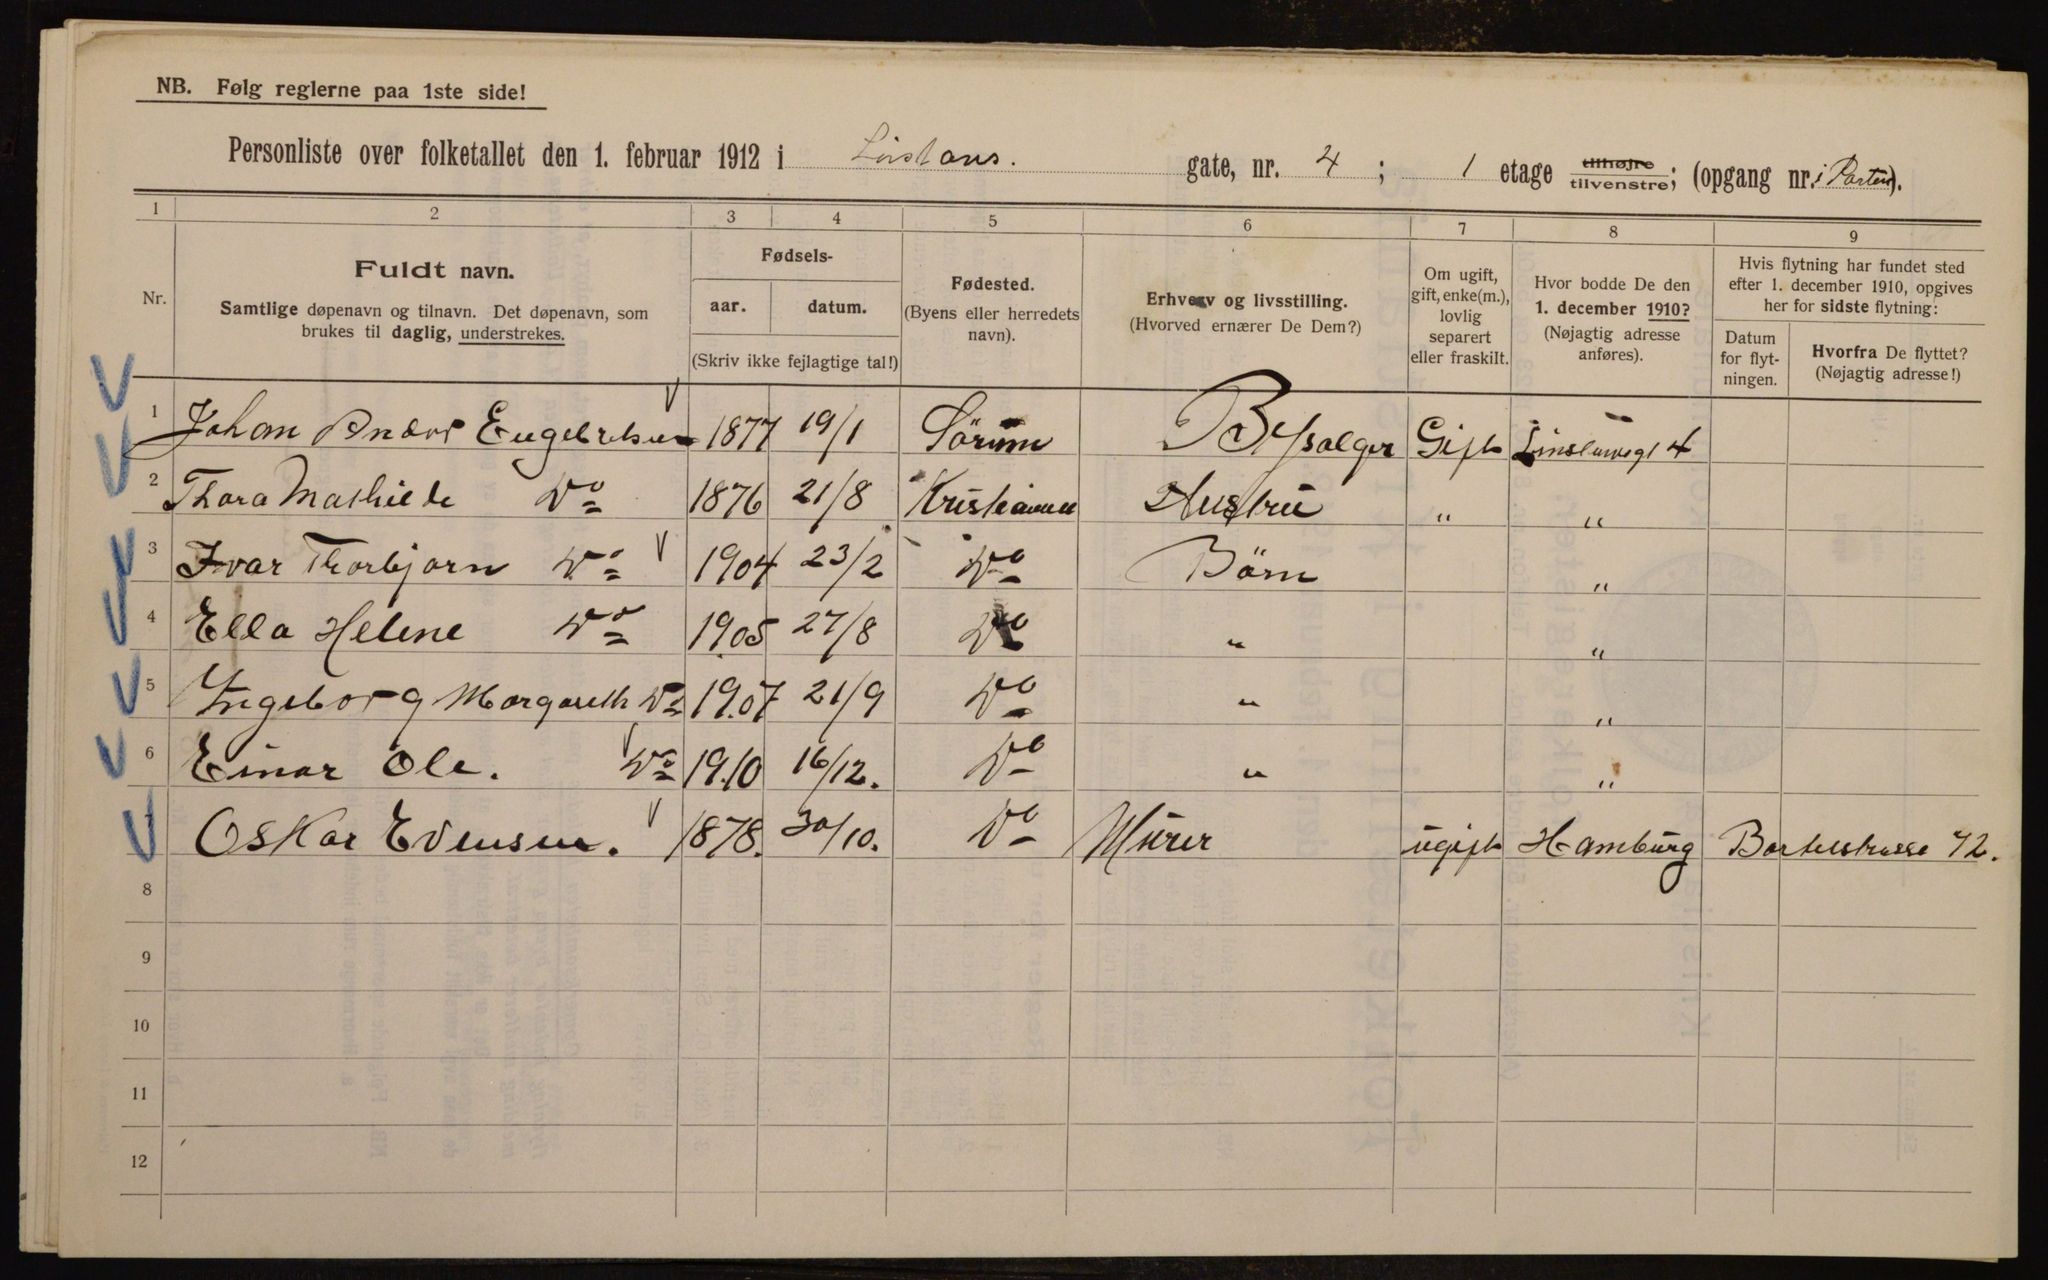 NB. Følg reglerne paa 1ste side!
Personliste over folketallet den 1. februar 1912 i Linstows. gate, nr. 4; 1 etage tilhøjre tilvenstre; (opgang nr. i Parten).
1 2 3 4 5 6 7 8 9
Nr.
Fuldt navn.
Samtlige døpenavn og tilnavn. Det døpenavn, som
brukes til daglig, understrekes.
Fødsels-
aar. datum.
(Skriv ikke fejlagtige tal!)
Fødested.
(Byens eller herredets
navn).
Erhverv og livsstilling.
(Hvorved ernærer De Dem?)
Om ugift,
gift, enke(m.),
lovlig
separert
eller fraskilt.
Hvor bodde De den
1. december 1910?
(Nøjagtig adresse
anføres).
Hvis flytning har fundet sted
efter 1. december 1910, opgives
her for sidste flytning:
Datum
for flyt-
ningen.
Hvorfra De flyttet?
(Nøjagtig adresse!)
1 Johan Engebretsen 1877 19/1 Sörum Gift 4
2 Thora Mathilde Do 1876 21/8 Kristiania Hustru " "
3 Ivar Thorbjørn Do 1904 23/2 Do Börn "
4 Ella Helene Do 1905 27/8 Do " "
5 Yngeborg Margareth Do 1907 21/9 Do " "
6 Einar Ole. Do 1910 16/12. Do " "
7 Oskar Evensen. 1878. 30/10. Do Murer ugift Hamburg 72.
8
9
10
11
12